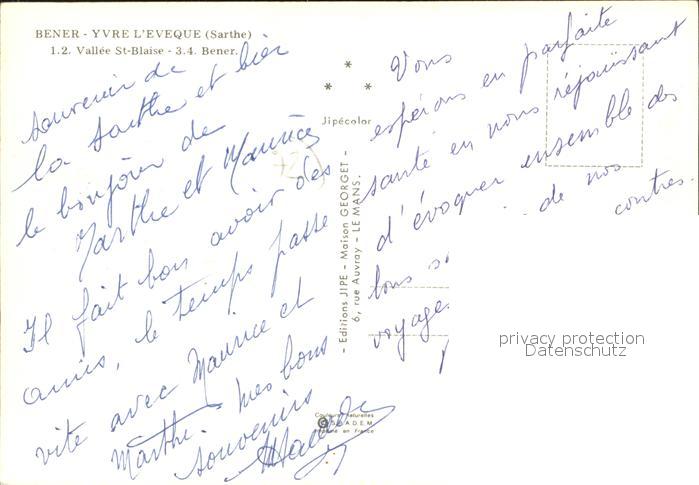 BENER - YVRE L'EVEQUE (Sarthe)
1.2. Vallée St-Blaise - 3.4. Bener.
souvenir de
la Sarthe et bier
le bonjour de
Marthe et Maurice
Il fait bon avoir des
amis, le temps passe
vite avec Maurice et
Marthe. Mes bons
souvenirs
Jipécolor
- Editions JIPE - Maison GEORGET -
6, rue Auvray - LE MANS.
Vous
espérons en parfaite
santé en nous réjouissant
d'évoquer ensemble des
bons so de nos
voyage contres.
Couleurs naturelles
en France
privacy protection
Datenschutz